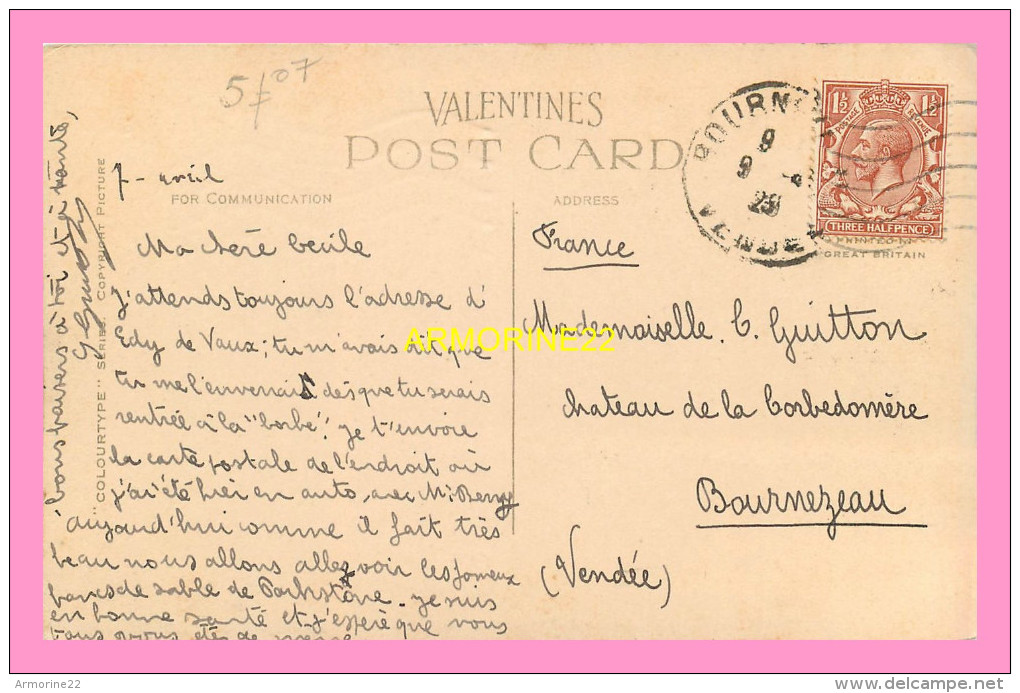 5f07
VALENTINES
POST CARD
FOR COMMUNICATION
ADDRESS
"COLOURTYPE" SERIES. COPYRIGHT PICTURE
PRINTED IN
GREAT BRITAIN
1½ 1½
POSTAGE REVENUE
THREE HALFPENCE
BOURNEZEAU
9
9 -4
29
VENDEE
7 - avril
Ma chère Cécile
J'attends toujours l'adresse d'
Edy de Vaux; tu m'avais dit que
tu me l'enverrais dès que tu serais
rentrée à la "Corbe". Je t'envoie
la carte postale de l'endroit où
j'ai été hier en auto avec Mr
aujourd'hui comme il fait très
beau nous allons aller voir les fameux
bancs de sable de Parkstone. Je suis
en bonne santé et j'espère que vous
tous
bons baisers à toi et à tante,
France
Mademoiselle C. Guitton
chateau de la Corbedomère
Bournezeau
(Vendée)
ARMORINE22
Armorine22
delcampe.net